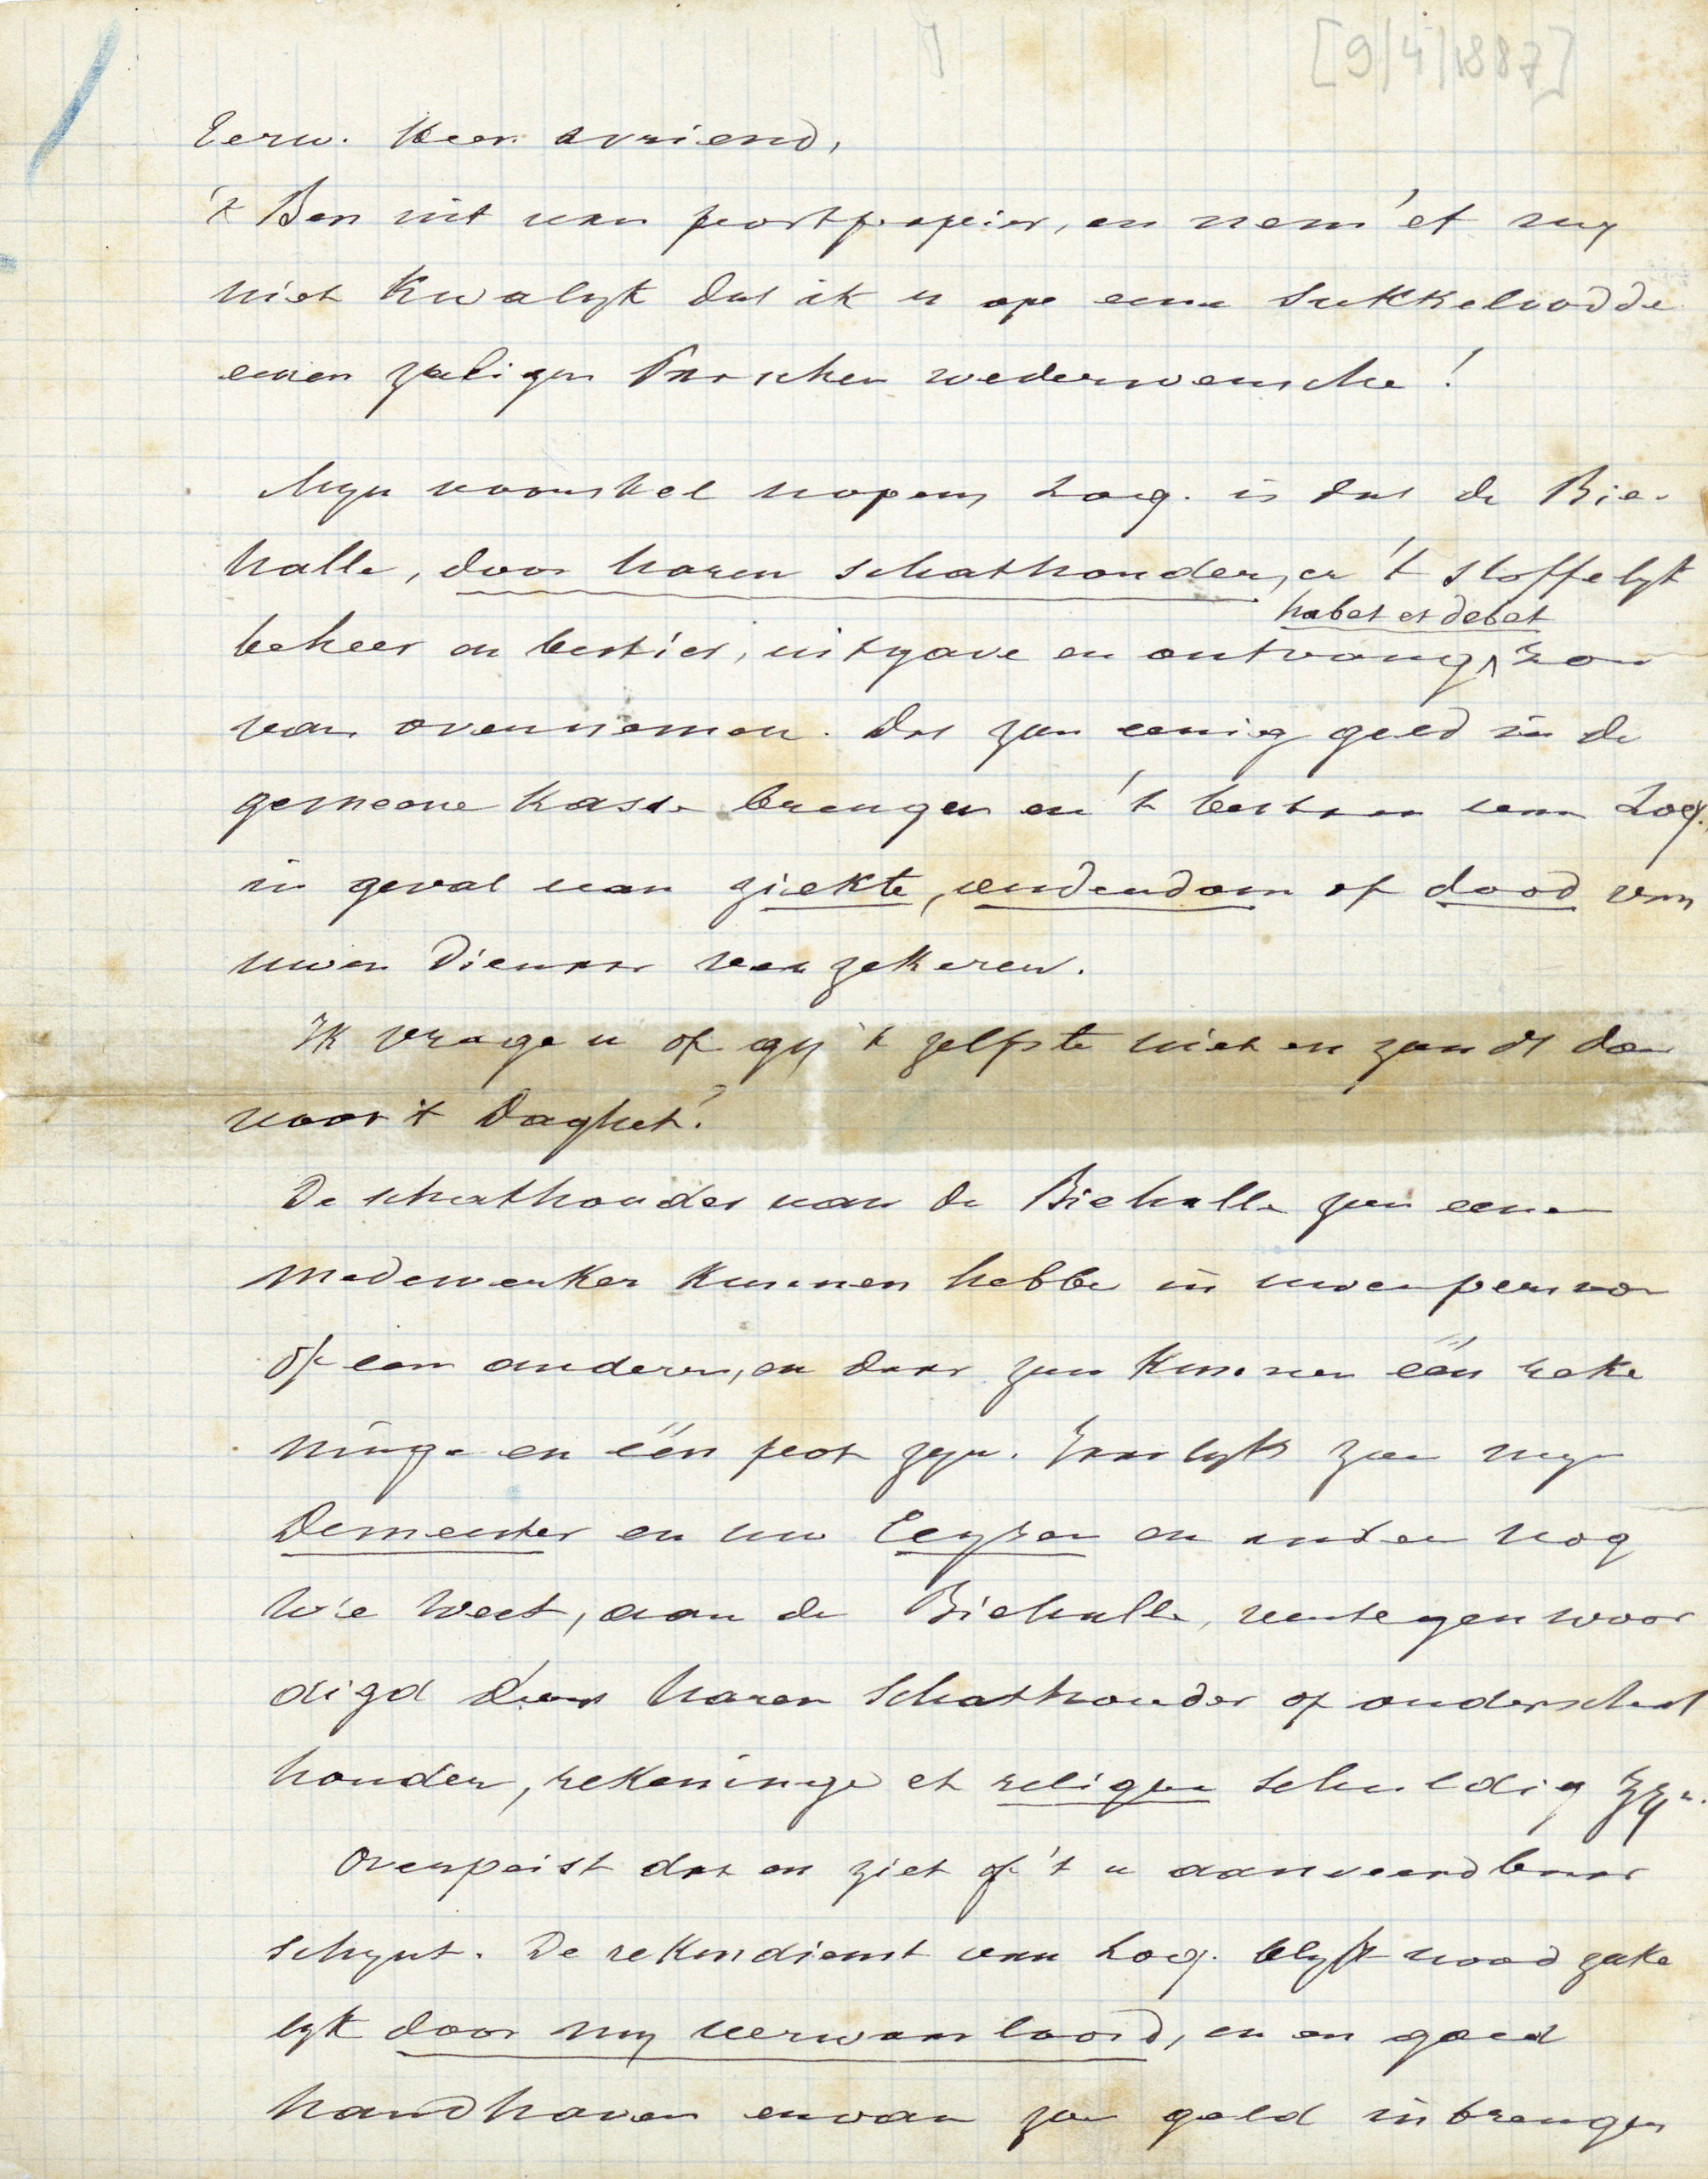 [9/4/1887]
Eerw. Heer & vriend,
'k Ben uit van postpapier, en nem' et my
niet kwalyk dat ik u op eene sukkelvodde
eenen zaligen Paschen wederwensche!
Myn voorstel nopens Loq. is dat de Bie-
halle, door haren schathouder, er 't stoffelyk
habet et debet
beheer en bestier, uitgave en ontvang, zou
van overnemen. Dat zou eenig geld in de
gemeene kasse brengen en 't bestaan van Loq.
in geval van ziekte, oudendom of dood van
uwen Dienaar verzekeren.
Ik vrage u of gy 't zelfste niet en zoudt doen
voor 't Daghet?
De schathouder van de Biehalle zou eenen
medewerker kunnen hebben in uwen persoon
of een anderen, en daar zou kunnen één reke
ninge en één pot zyn. Jaarlyks zou myn
Demeester en uw Ceyssen en ander nog
wie weet, aan de Biehalle, vertegenwoor
digd door haren Schathouder of onderschat
houder, rekeninge et reliqua schuldig zyn.
Overpeist dat en ziet of 't u aanveerdbaar
schynt. De rekendienst van Loq. blyft noodzake
lyk door my verwaarloosd, en en goed
handhaven ervan zou geld inbrengen